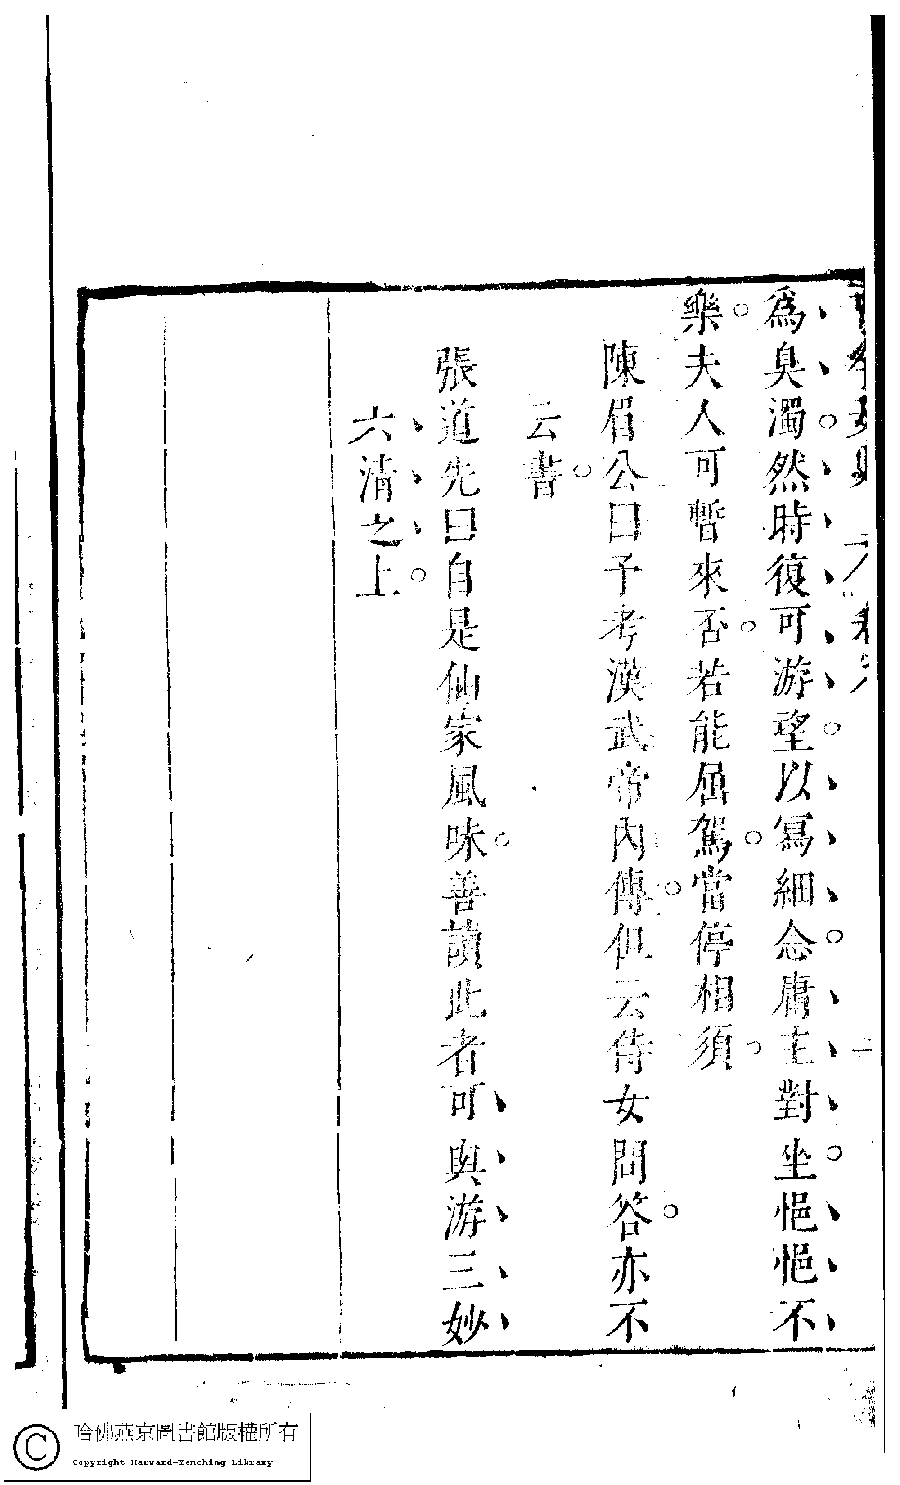 為臭濁然時復可游望以寫細念庸主對坐悒悒不
樂夫人可暫來否若能屈駕當停相須
陳眉公曰予考漢武帝內傳但云侍女問答亦不
云書
張道先曰自是仙家風味善讀此者可與游三妙
六清之上
哈佛燕京圖書館版權所有
Copyright Harvard-Yenching Library